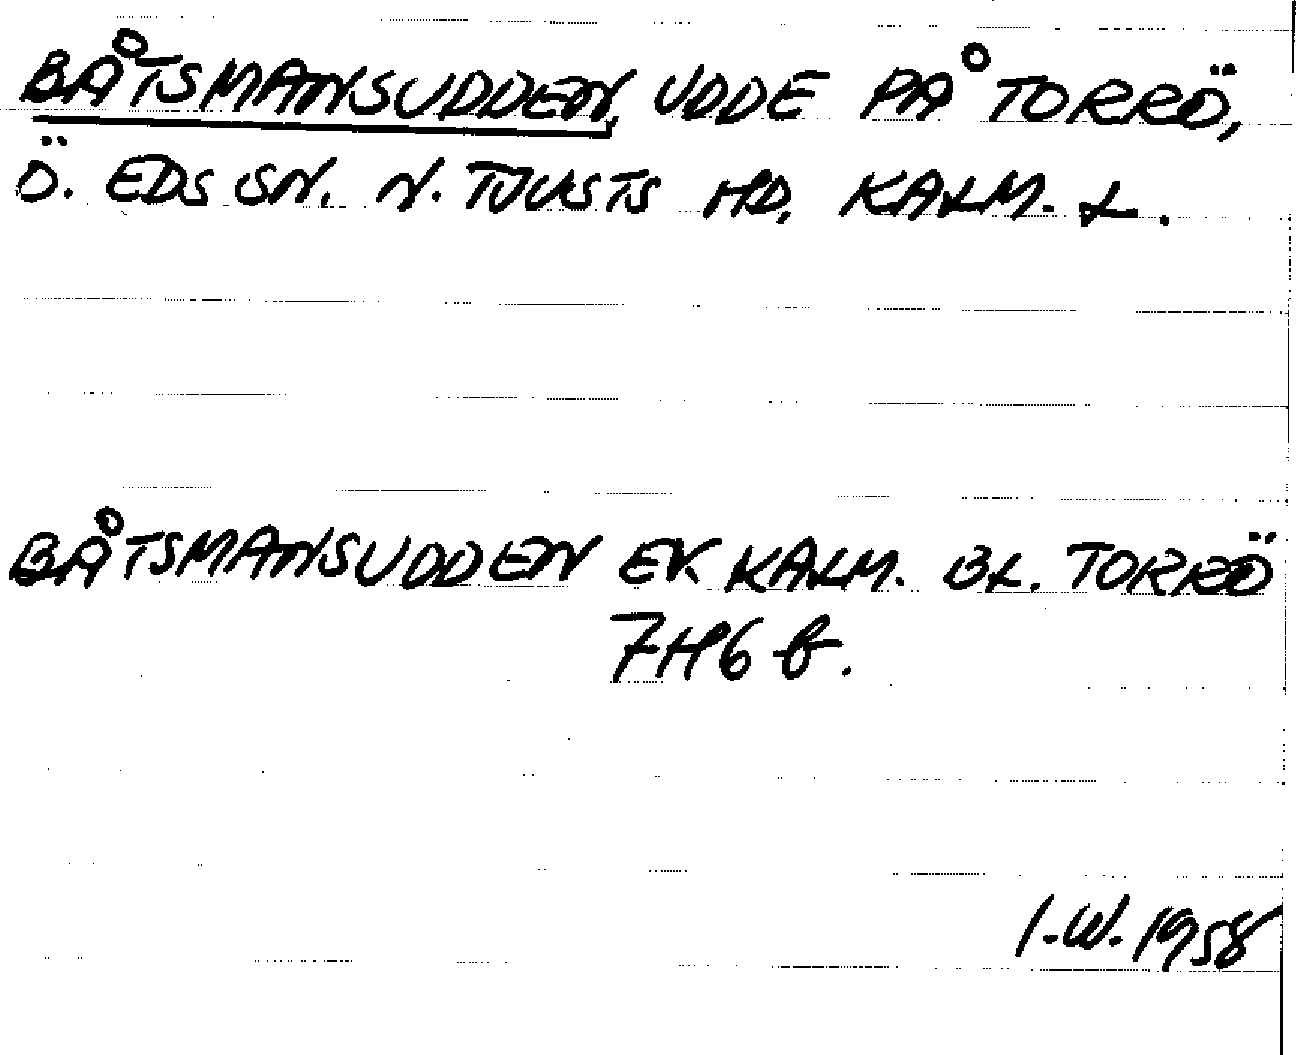 BÅTSMANSUDDEN, UDDE PÅ TORRÖ,
Ö. EDS SN. N. TJUSTS HD. KALM. L.
BÅTSMANSUDDEN EK KALM. BL. TORRÖ
7H6 b.
I.W. 1958